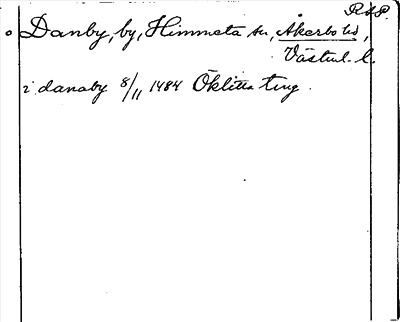 RAP.
o Danby, by, Himmeta sn, Åkerbo hd,
Västml. l.
i danaby 8/11 1484 Öklista ting.